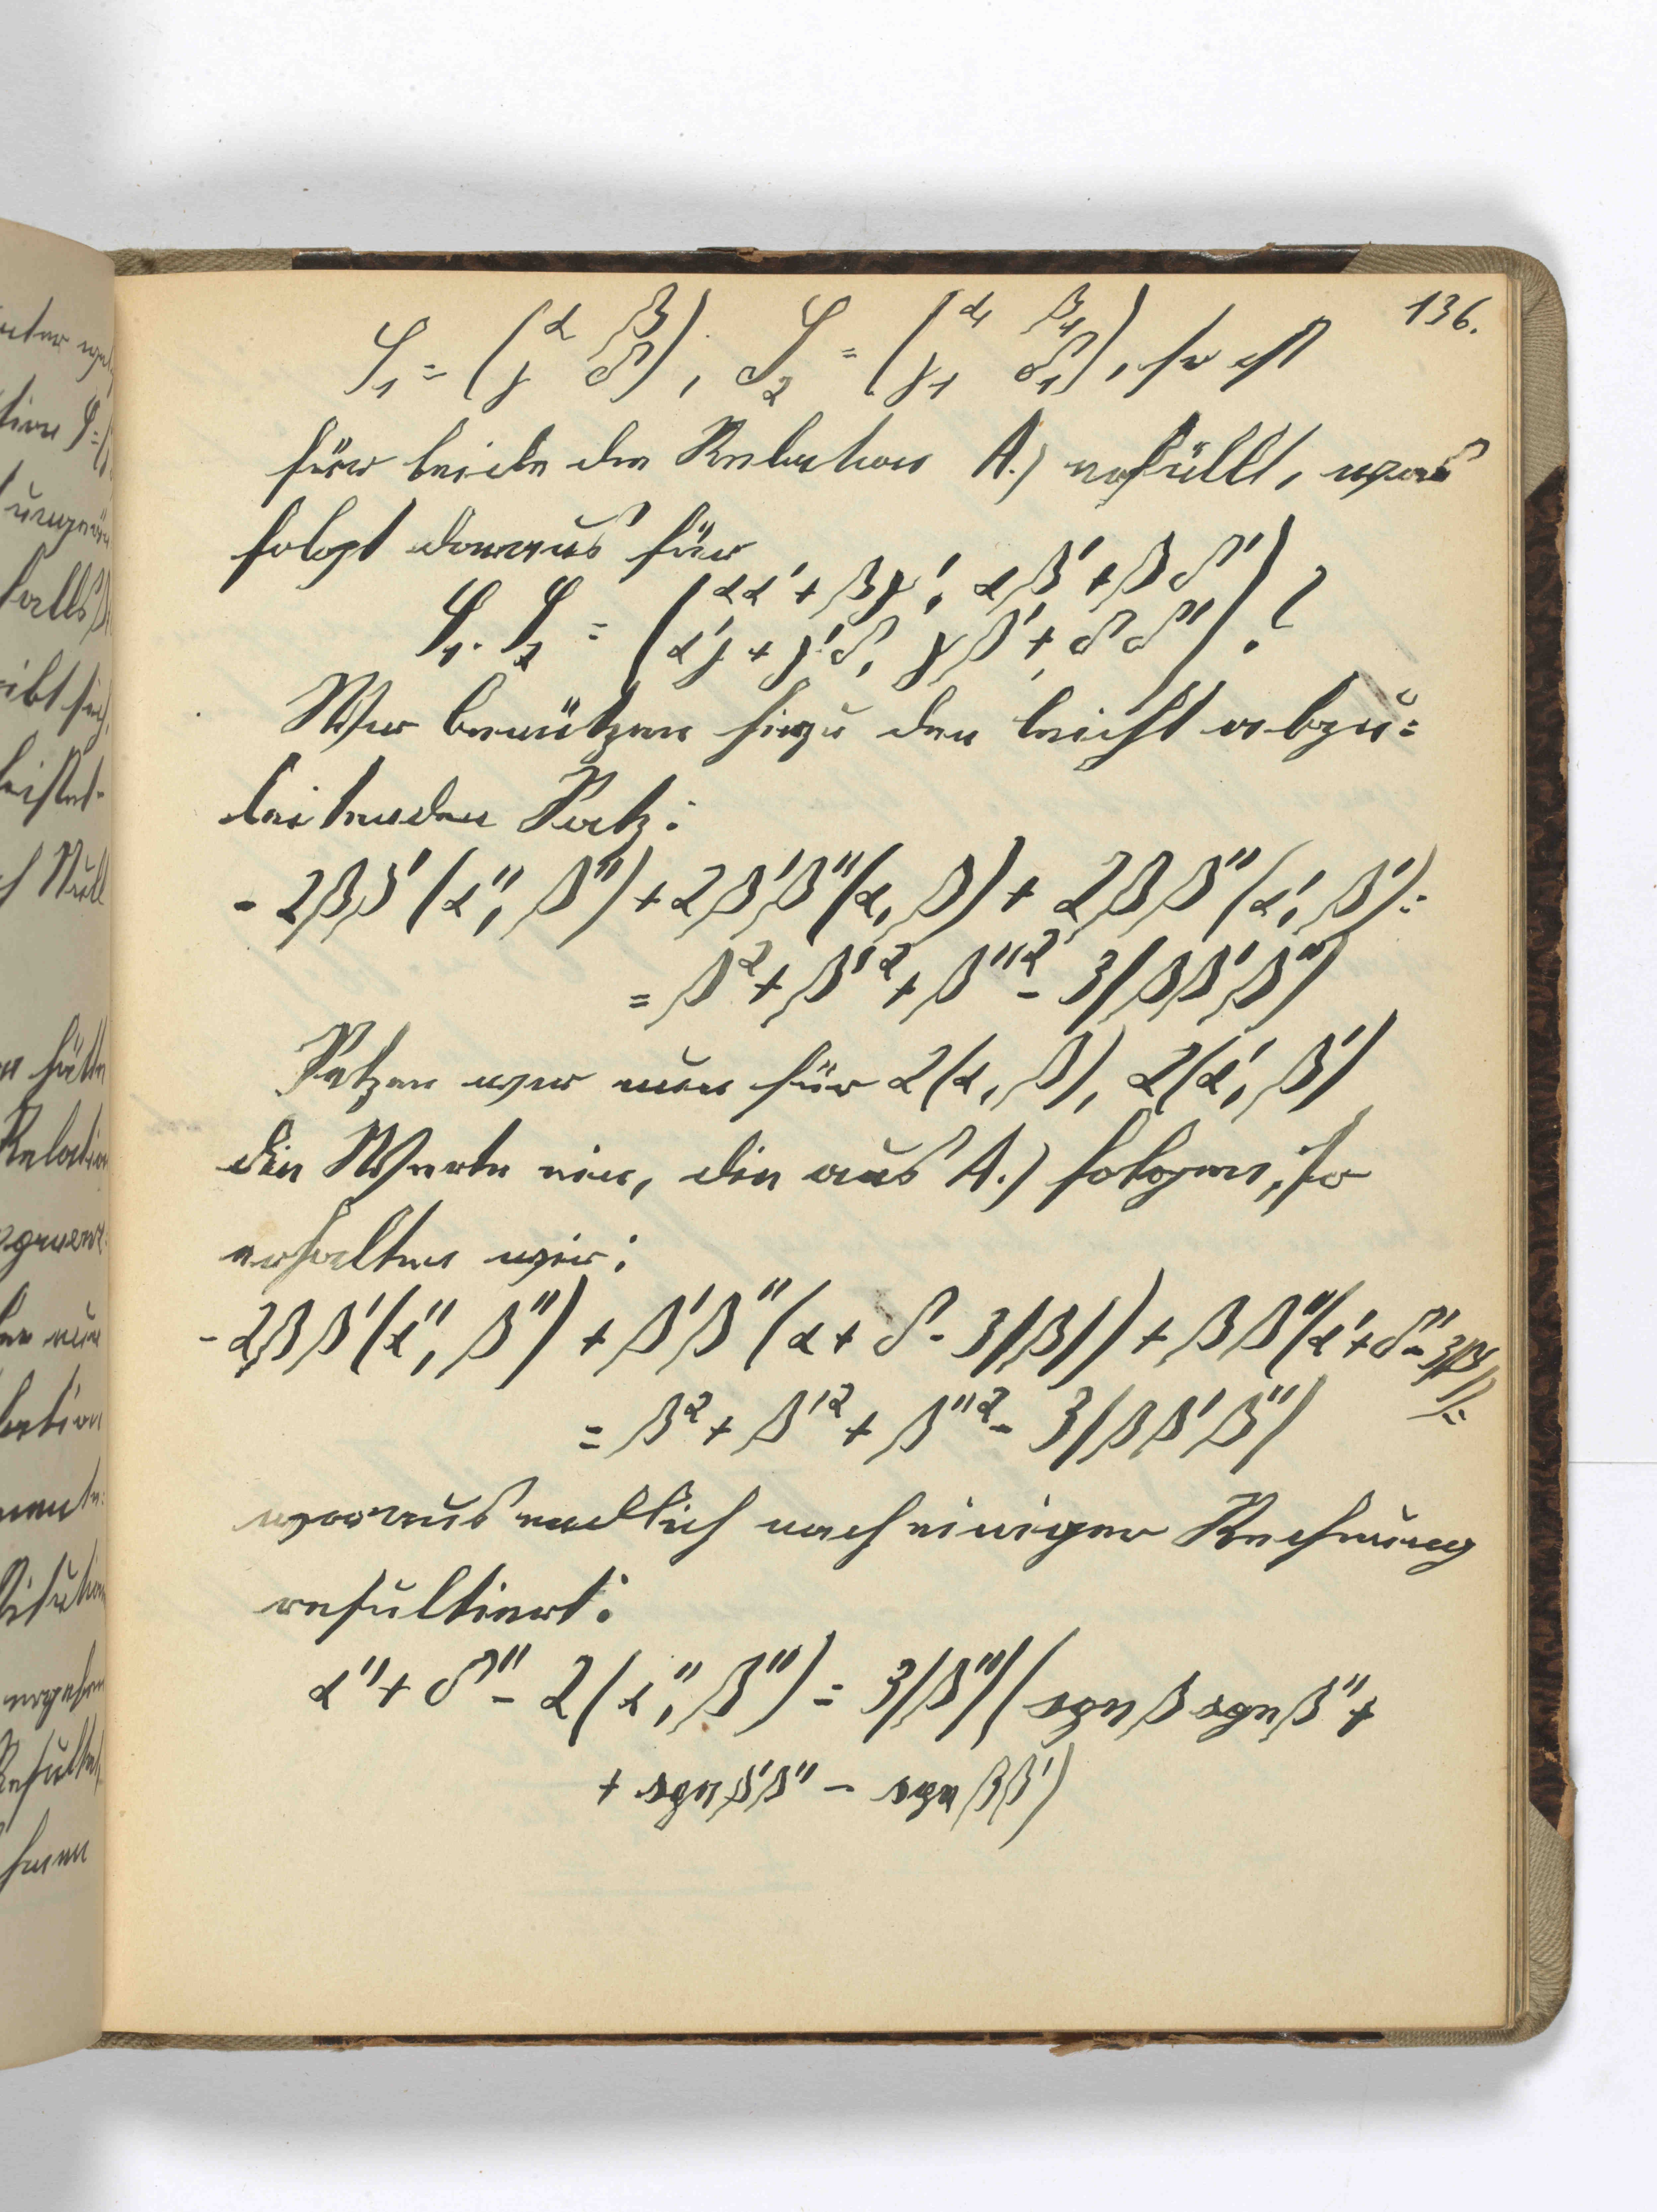 136.
S₁ = (α β / γ δ), S₂ = (α₁ β₁ / γ₁ δ₁), so ist
für beide die Relation A.) erfüllt, was
folgt daraus für
S₁·S₂ = (αα' + βγ', αβ' + βδ' / α'γ + γ'δ, γβ' + δδ').?
Wir benützen hiezu den leicht abzu=
leitenden Satz:
- 2ββ'(α'', β'') + 2β'β''(α, β) + 2ββ''(α', β') =
= β² + β'² + β''² - 3|ββ'β''|
Setzen wir nun für 2(α, β), 2(α', β')
die Werte ein, die aus A.) folgen, so
erhalten wir:
- 2ββ'(α'', β'') + β'β''(α + δ - 3|β|) + ββ''(α' + δ' - 3|β'|) =
= β² + β'² + β''² - 3|ββ'β''|
woraus endlich nach einiger Rechnung
resultiert:
α'' + δ'' - 2(α'', β'') = 3|β''|(sgn β sgn β'' +
+ sgn β'β'' - sgn ββ')